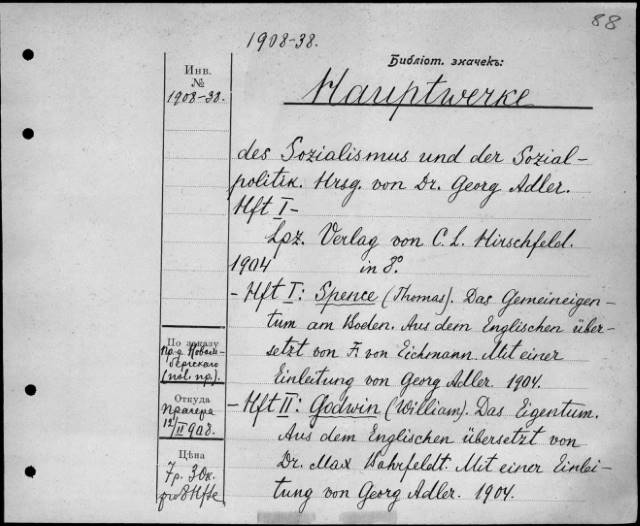 88
1908-38.
Библіот. значекъ:
Инв.
№
1908-38.
Hauptwerke
des Sozialismus und der Sozial-
politik. Hrsg. von Dr. Georg Adler.
Hft I-
Lpz. Verlag von C. L. Hirschfeld.
1904 in 8°.
- Hft I: Spence (Thomas). Das Gemeineigen-
tum am Boden. Aus dem Englischen über-
setzt von F. von Eichmann. Mit einer
Einleitung von Georg Adler. 1904.
- Hft II: Godwin (William). Das Eigentum.
Aus dem Englischen übersetzt von
Dr. Max Bahrfeldt. Mit einer Einlei-
tung von Georg Adler. 1904.
По заказу
Откуда
12/II 908.
Цѣна
7р. 30к.